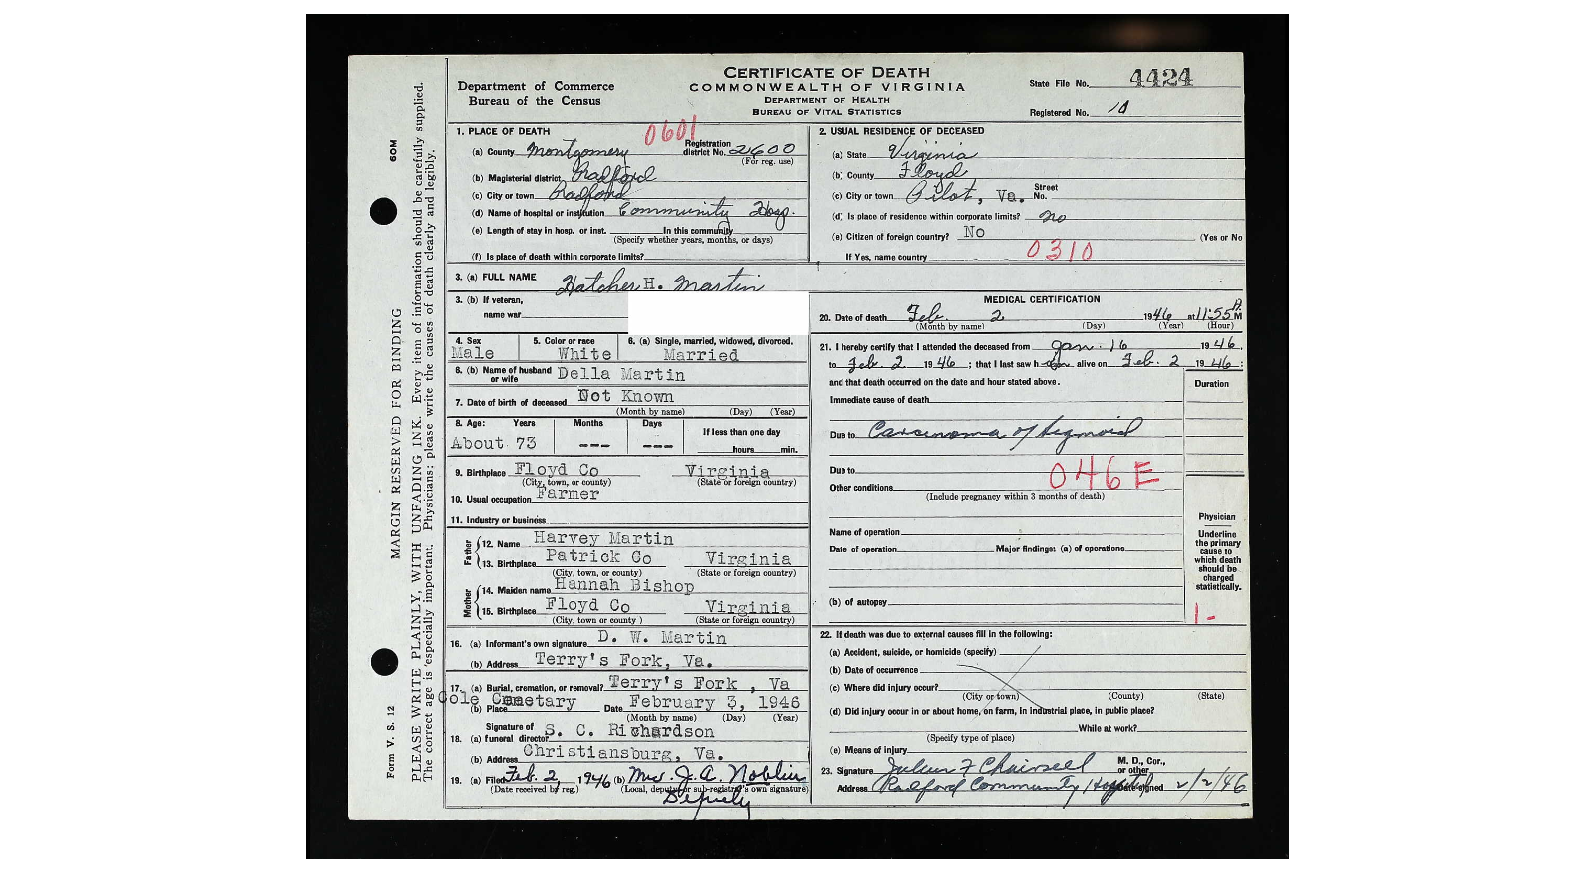 CERTIFICATE OF DEATH
COMMONWEALTH OF VIRGINIA
DEPARTMENT OF HEALTH
BUREAU OF VITAL STATISTICS
Department of Commerce
Bureau of the Census
State File No. 4424
Registered No. 10
1. PLACE OF DEATH
0601
(a) County Montgomery Registration district No. 2600
(For reg. use)
(b) Magisterial district Radford
(c) City or town Radford
(d) Name of hospital or institution Community Hosp.
(e) Length of stay in hosp. or inst. In this community
(Specify whether years, months, or days)
(f) Is place of death within corporate limits?
2. USUAL RESIDENCE OF DECEASED
(a) State Virginia
(b) County Floyd
(c) City or town Pilot, Va. Street No.
(d) Is place of residence within corporate limits? no
(e) Citizen of foreign country? No (Yes or No
If Yes, name country 0310
3. (a) FULL NAME Hatcher H. Martin
3. (b) If veteran,
name war
4. Sex 5. Color or race 6. (a) Single, married, widowed, divorced.
Male White Married
6. (b) Name of husband or wife Della Martin
7. Date of birth of deceased Not Known
(Month by name) (Day) (Year)
8. Age: Years Months Days If less than one day
About 73 --- --- hours min.
9. Birthplace Floyd Co Virginia
(City, town, or county) (State or foreign country)
10. Usual occupation Farmer
11. Industry or business
Father
12. Name Harvey Martin
13. Birthplace Patrick Co Virginia
(City, town, or county) (State or foreign country)
Mother
14. Maiden name Hannah Bishop
15. Birthplace Floyd Co Virginia
(City, town or county ) (State or foreign country)
16. (a) Informant's own signature D. W. Martin
(b) Address Terry's Fork, Va.
17. (a) Burial, cremation, or removal? Terry's Fork , Va
Cole Cemetary
(b) Place Date February 3, 1946
(Month by name) (Day) (Year)
18. (a) Signature of funeral director S. C. Richardson
(b) Address Christiansburg, Va.
19. (a) Filed Feb. 2, 1946 (b) Mrs. J. A. Noblin
(Date received by reg.) (Local, deputy or sub-registrar's own signature)
Deputy
MEDICAL CERTIFICATION
20. Date of death Feb. 2 1946 at 11:55 A. M
(Month by name) (Day) (Year) (Hour)
21. I hereby certify that I attended the deceased from Jan. 16 1946
to Feb. 2 1946 ; that I last saw h alive on Feb. 2 1946 ;
and that death occurred on the date and hour stated above. Duration
Immediate cause of death
Due to Carcinoma of Sigmoid
Due to
046E
Other conditions
(Include pregnancy within 3 months of death)
Name of operation
Date of operation Major findings: (a) of operations
(b) of autopsy
Physician
Underline
the primary
cause to
which death
should be
charged
statistically.
1-
22. If death was due to external causes fill in the following:
(a) Accident, suicide, or homicide (specify)
(b) Date of occurrence
(c) Where did injury occur?
(City or town) (County) (State)
(d) Did injury occur in or about home, on farm, in industrial place, in public place?
While at work?
(Specify type of place)
(e) Means of injury
23. Signature M. D., Cor., or other
Address Radford Community Hospital Date signed 2/2/46
Form V. S. 12 MARGIN RESERVED FOR BINDING 60M
PLEASE WRITE PLAINLY, WITH UNFADING INK. Every item of information should be carefully supplied.
The correct age is especially important. Physicians: please write the causes of death clearly and legibly.